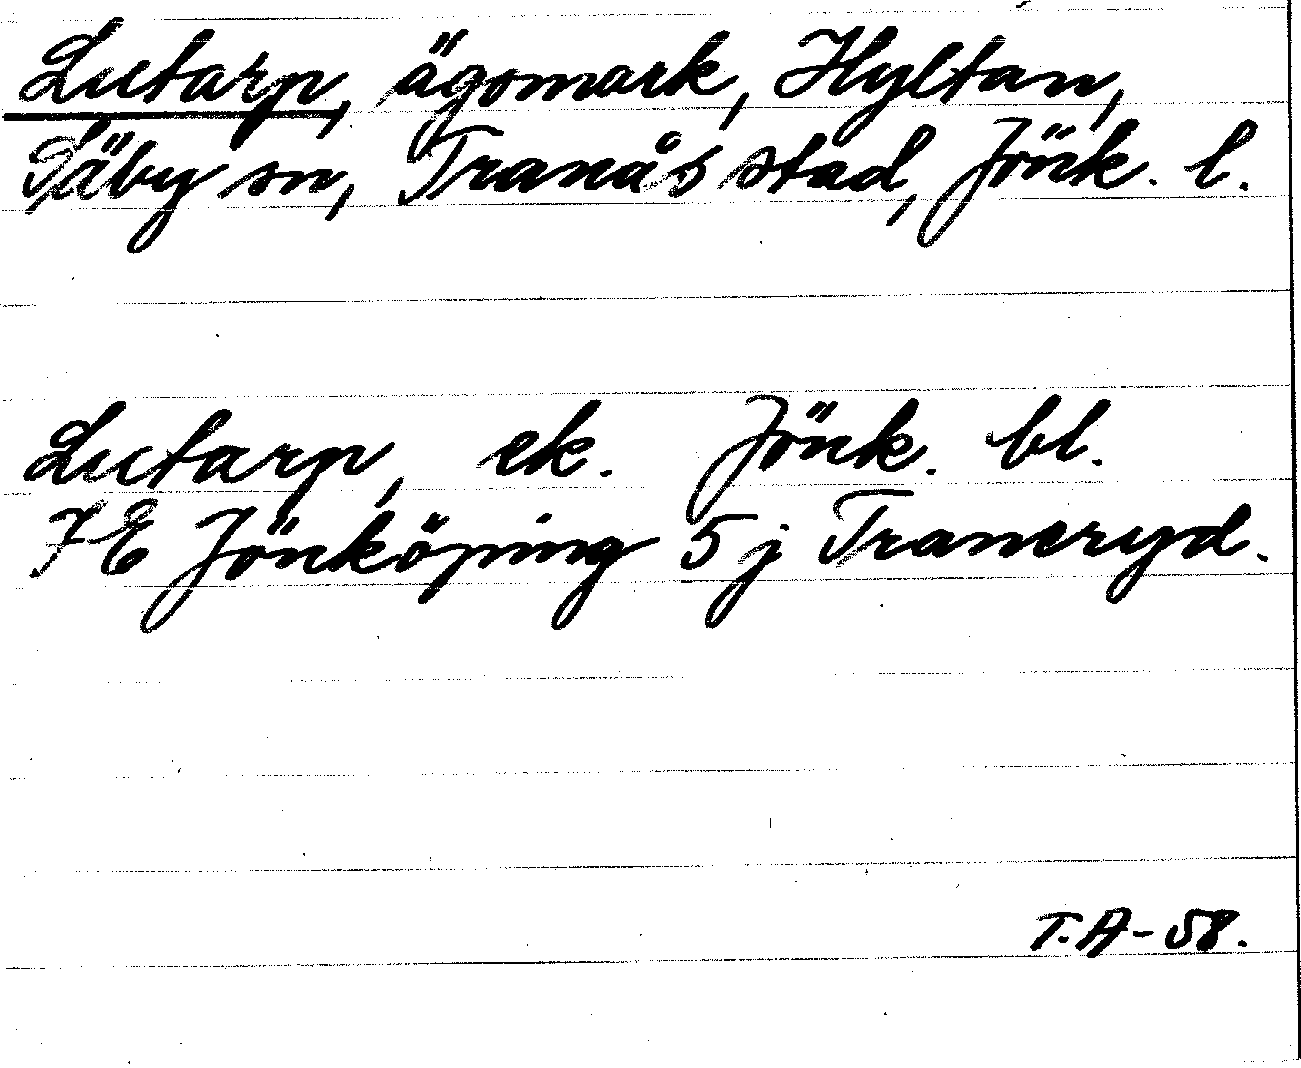 Lutarp, ägomark, Hyltan,
Säby sn, Tranås stad, Jönk. l.
Lutarp, ek. Jönk. bl.
7E Jönköping 5j Traneryd.
T.A-58.